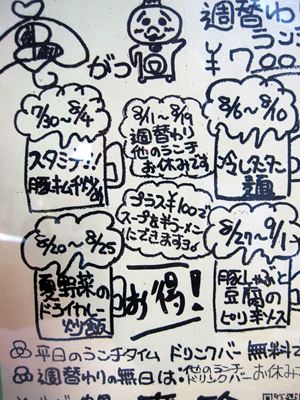 週替わり
ランチ
¥700
がっ
7/30〜8/4
スタミナ!!
豚キムチ炒め
8/11〜8/19
週替わり
他のランチ
お休みです
8/6〜8/10
冷したたん
麺
プラス¥100で
スープを半ラーメン
にできますよ
8/20〜8/25
夏野菜の
ドライカレー
炒飯
お得!
8/27〜9/1
豚しゃぶと
豆腐の
ピリ辛ソース
平日のランチタイム ドリンクバー 無料
週替わりの無日は:他のランチ
ドリンクバー お休み